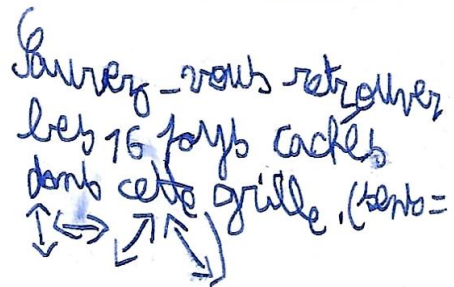 Saurez-vous retrouver
les 16 pays cachés
dans cette grille. (sens =
↕ ↔ ↗ ↘)